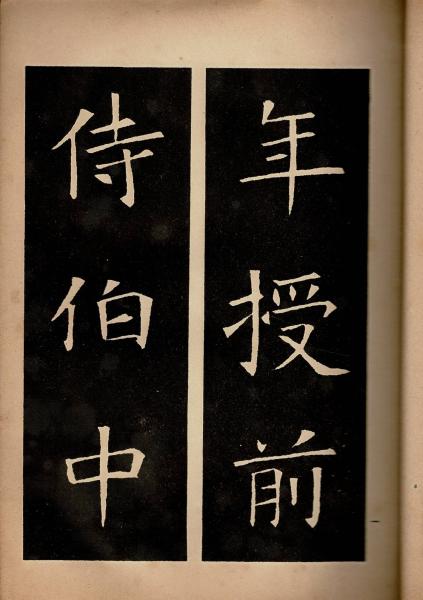 年授前
侍伯中